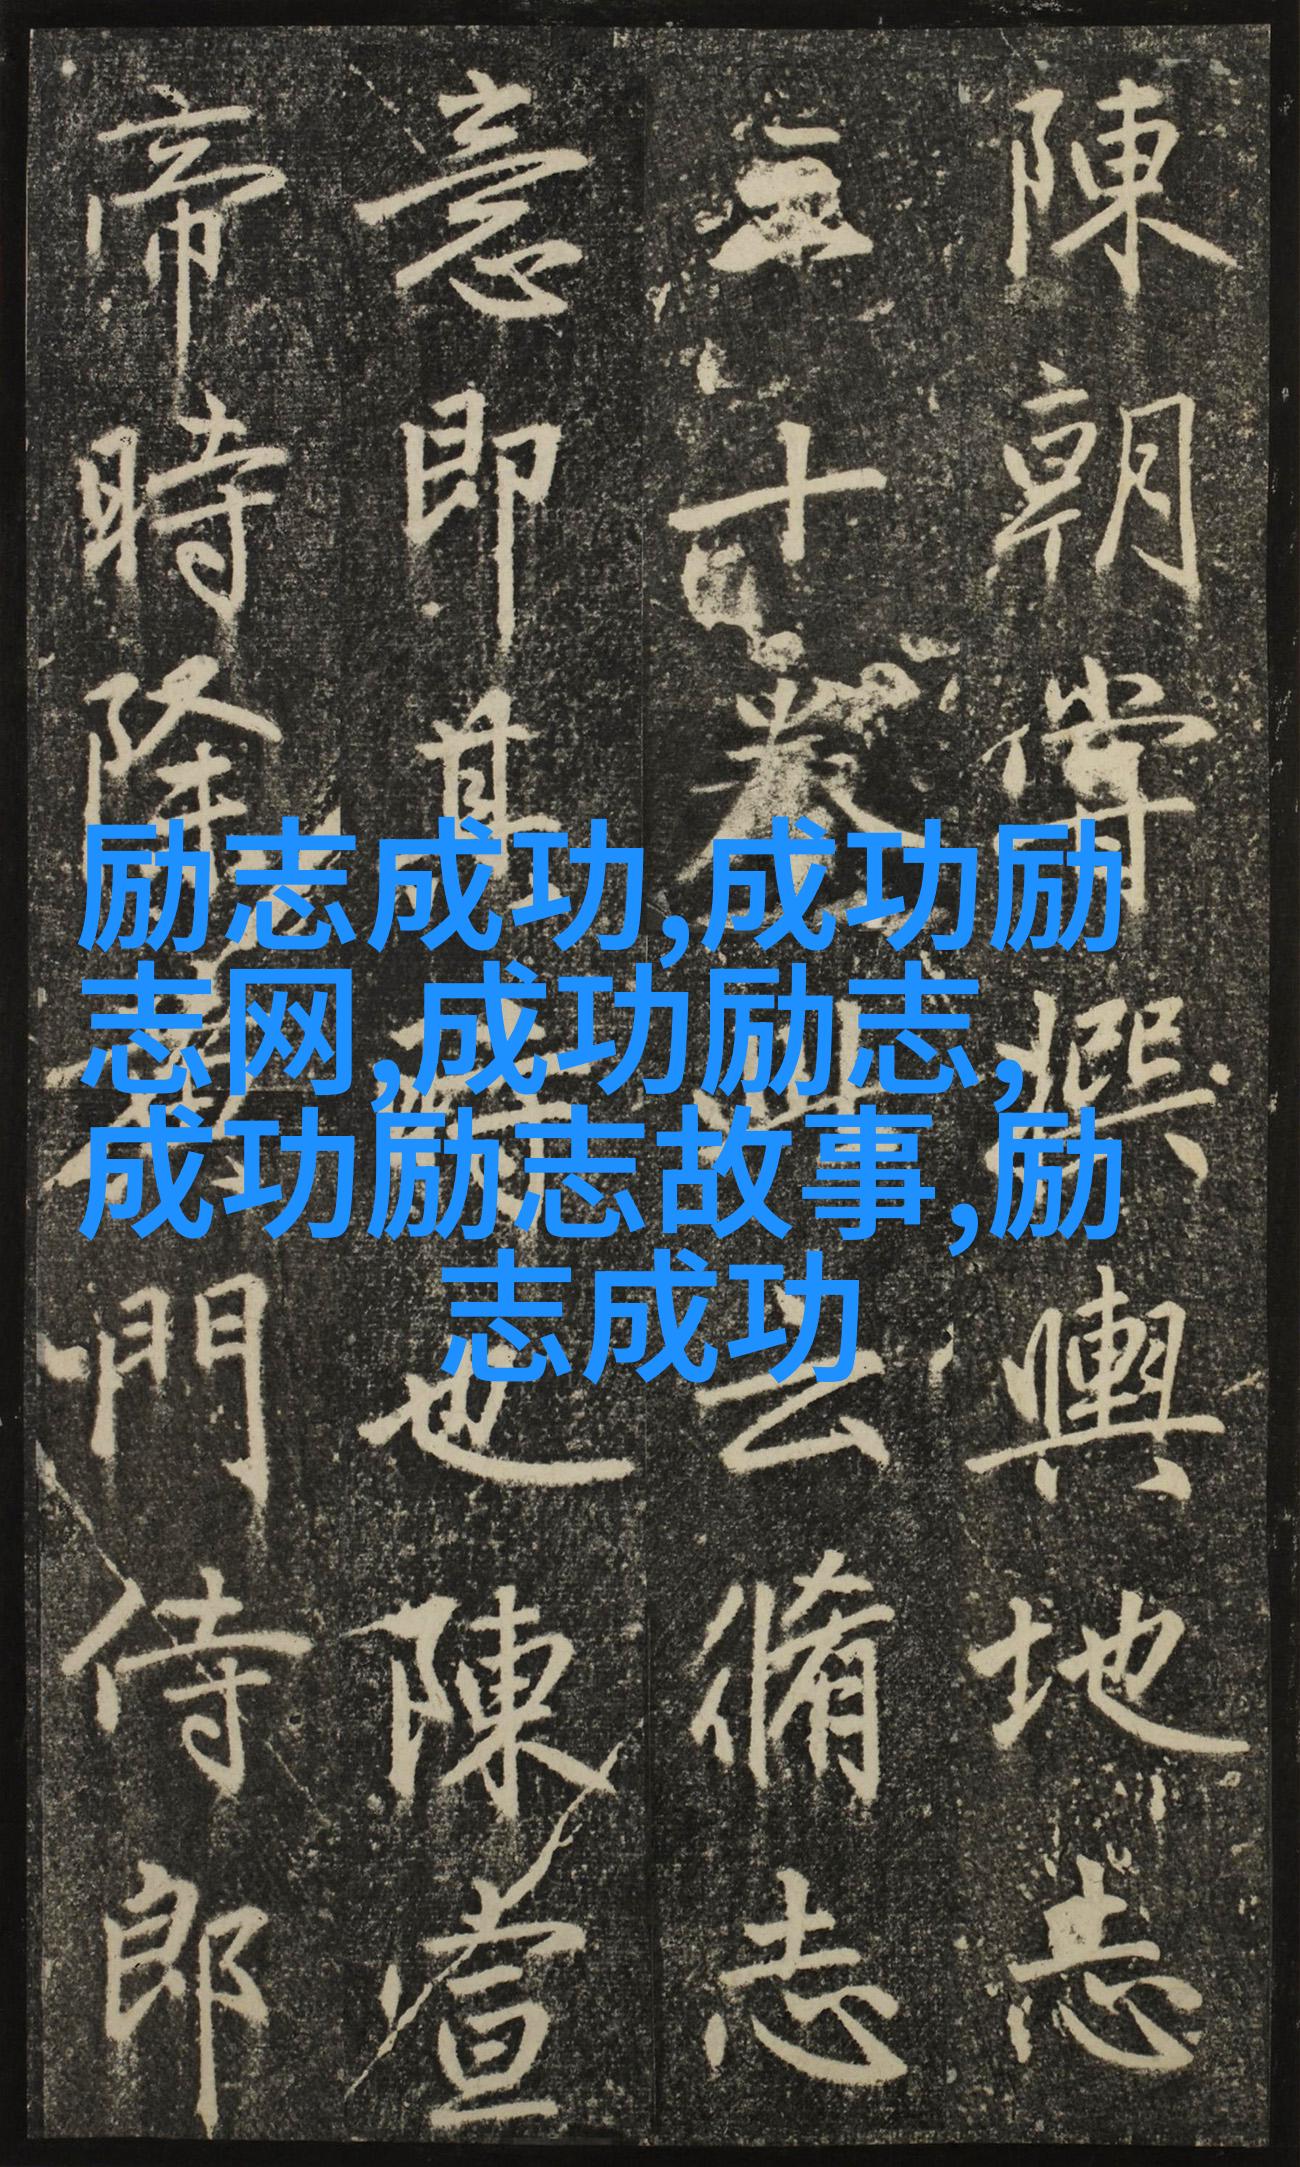 陳朝嘗撰輿地志
三十卷云脩志
意即其也陳宣
帝時降門侍郎
励志成功,成功励
志网,成功励志,
成功励志故事,励
志成功